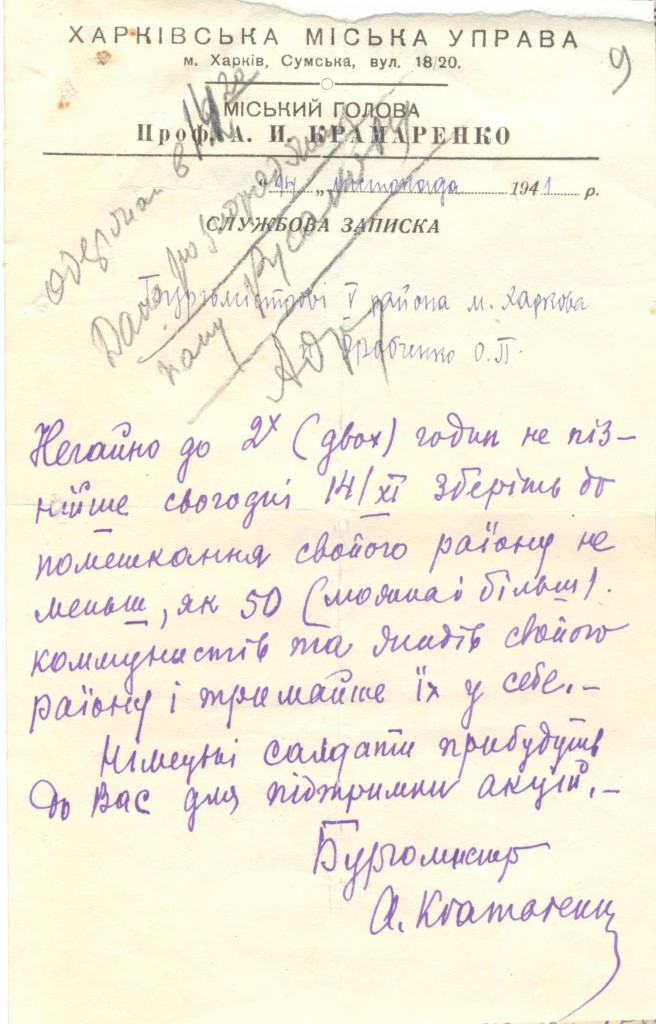 ХАРКІВСЬКА МІСЬКА УПРАВА
м. Харків, Сумська, вул. 18/20.
9
МІСЬКИЙ ГОЛОВА
Проф. А. И. КРАМАРЕНКО
"14" листопада 1941 р.
СЛУЖБОВА ЗАПИСКА
одержана в
Дано розпорядження
пану
Бургомістрові V района м. Харкова
О.П.
Негайно до 2х (двох) годин не піз–
нійше сьогодні 14/XI зберіть до
помешкання свойого району не
меньш, як 50 (можна і більш).
коммунистів та жидів свойого
району і тримайте їх у себе.–
Німецькі салдати прибудуть
до Вас для підтримки акцій.–
Бургомистр
А. Крамаренко